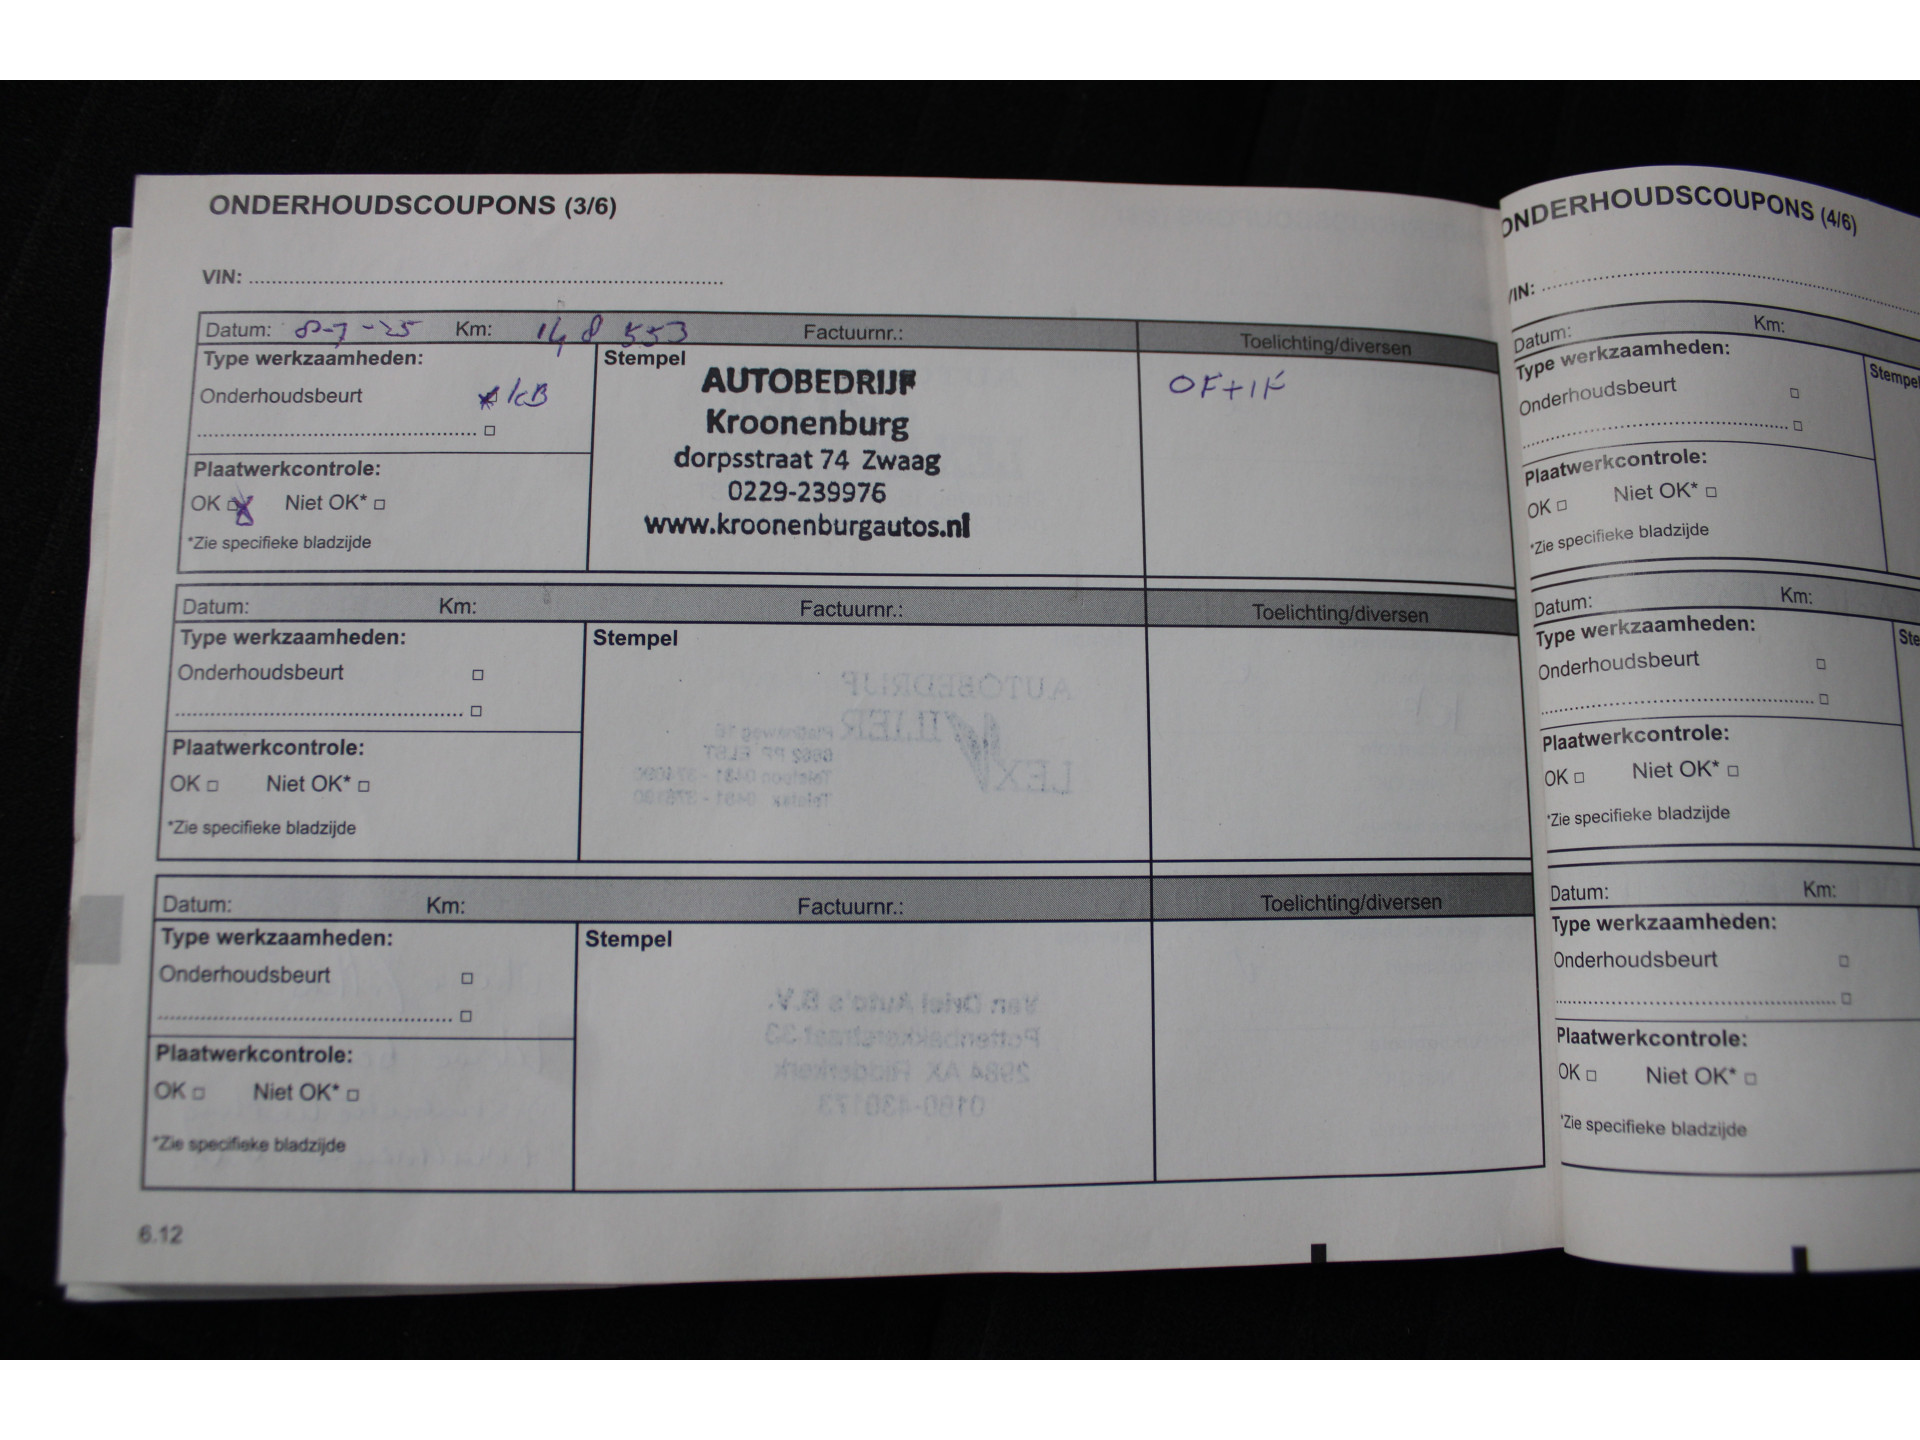 ONDERHOUDSCOUPONS (3/6)
VIN:
Datum: 8-7-25 Km: 148 553 Factuurnr.: Toelichting/diversen
Type werkzaamheden: Stempel
Onderhoudsbeurt KB
AUTOBEDRIJF
Kroonenburg
dorpsstraat 74 Zwaag
0229-239976
www.kroonenburgautos.nl
OF+IF
Plaatwerkcontrole:
OK Niet OK*
*Zie specifieke bladzijde
Datum: Km: Factuurnr.: Toelichting/diversen
Type werkzaamheden: Stempel
Onderhoudsbeurt
Plaatwerkcontrole:
OK Niet OK*
*Zie specifieke bladzijde
Datum: Km: Factuurnr.: Toelichting/diversen
Type werkzaamheden: Stempel
Onderhoudsbeurt
Plaatwerkcontrole:
OK Niet OK*
*Zie specifieke bladzijde
6.12
ONDERHOUDSCOUPONS (4/6)
VIN:
Datum: Km:
Type werkzaamheden: Stempel
Onderhoudsbeurt
Plaatwerkcontrole:
OK Niet OK*
*Zie specifieke bladzijde
Datum: Km:
Type werkzaamheden: Ste
Onderhoudsbeurt
Plaatwerkcontrole:
OK Niet OK*
*Zie specifieke bladzijde
Datum: Km:
Type werkzaamheden:
Onderhoudsbeurt
Plaatwerkcontrole:
OK Niet OK*
*Zie specifieke bladzijde